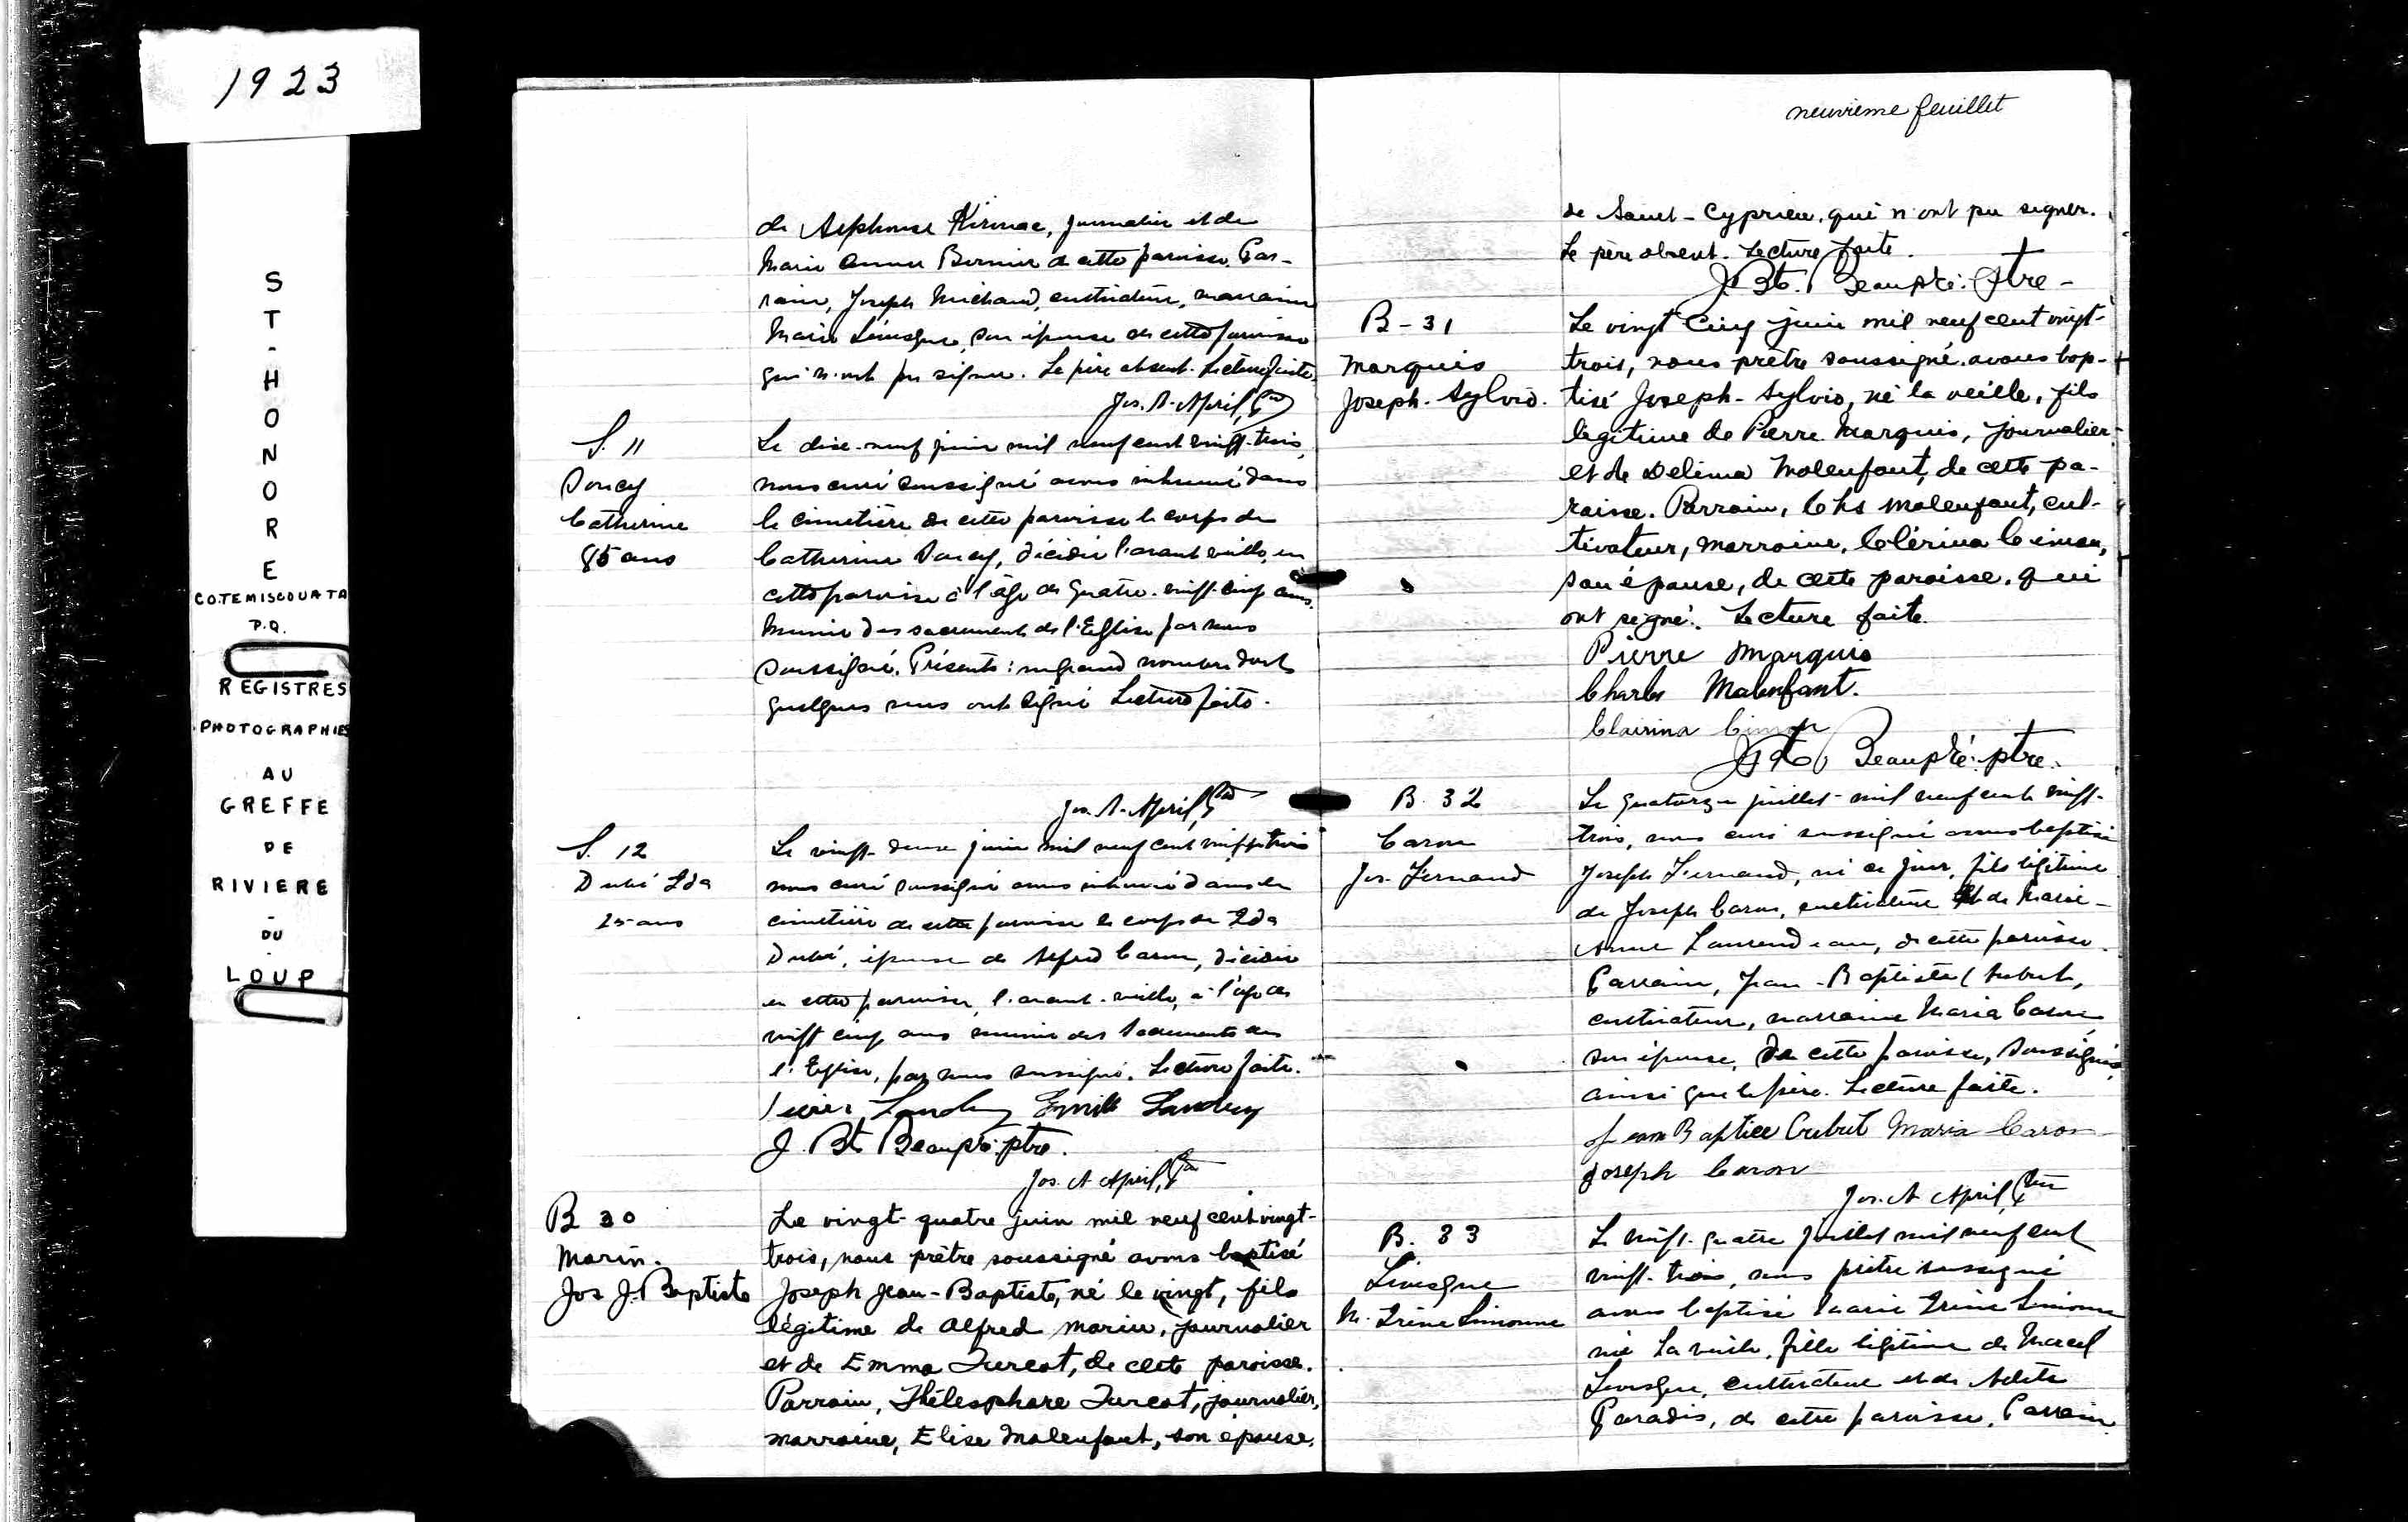 1923
S
T
-
H
O
N
O
R
E
CO.TEMISCOUATA
P.Q.
REGISTRES
PHOTOGRAPHIES
AU
GREFFE
DE
RIVIERE
-
DU
-
LOUP
de Alphonse journalier et de
Marie Anna Bernier de cette paroisse. Par-
rain, Joseph Michaud, cultivateur, marraine
Marie Lévesque, son épouse de cette paroisse
qui n'ont pu signer. Le père absent. Lecture faite.
Jos. A. April, Ptre
S. 11
Catherine
85 ans
Le dix-neuf juin mil neuf cent vingt-trois,
nous curé soussigné avons inhumé dans
le cimetière de cette paroisse le corps de
Catherine décédée l'avant veille, en
cette paroisse à l'âge de quatre-vingt-cinq ans.
Munie des sacrements de l'Eglise par nous
soussigné. Présents: un grand nombre dont
quelques uns ont signé Lecture faite.
Jos. A. April, Ptre
S. 12
Dubé Eda
25 ans
Le vingt-deux juin mil neuf cent vingt-trois
nous curé soussigné avons inhumé dans le
cimetière de cette paroisse le corps de Eda
Dubé, épouse de Alfred Caron, décédée
en cette paroisse, l'avant-veille, à l'âge de
vingt cinq ans munie des Sacrements de
l'Eglise, par nous soussigné. Lecture faite.
Landry Emile Landry
J. Bte Beaupré. ptre.
Jos. A April, Ptre
B 30
Marin.
Jos J. Baptiste
Le vingt-quatre juin mil neuf cent vingt-
trois, nous prêtre soussigné avons baptisé
Joseph Jean-Baptiste, né le vingt, fils
légitime de Alfred Marin, journalier
et de Emma Turcot, de cette paroisse.
Parrain, Thélesphore Turcot, journalier,
marraine, Elise Malenfant, son épouse,
neuvième feuillet
de Saint-Cyprien, qui n'ont pu signer.
Le père absent. Lecture faite.
J. Bte. Beaupré. Ptre-
B-31
Marquis
Joseph. Sylvio.
Le vingt cinq juin mil neuf cent vingt-
trois, nous prêtre soussigné, avons bap-
tisé Joseph-Sylvio, né la veille, fils
légitime de Pierre Marquis, journalier
et de Delima Malenfant, de cette pa-
roisse. Parrain, Chs Malenfant, cul-
tivateur, marraine, Clérina Cimon,
son épouse, de cette paroisse, qui
ont signé. Lecture faite.
Pierre Marquis
Charles Malenfant.
Clairina Cimon
J. Bte Beaupré. ptre.
B. 32
Caron
Jos. Fernand
Le quatorze juillet mil neuf cent vingt-
trois, nous curé soussigné avons baptisé
Joseph Fernand, né ce jour, fils légitime
de Joseph Caron, cultivateur et de Marie-
Anne Laurendeau, de cette paroisse.
Parrain, Jean-Baptiste
cultivateur, marraine Maria Caron
son épouse, de cette paroisse, soussignés
ainsi que le père. Lecture faite.
Jean Baptiste Maria Caron
Joseph Caron
Jos. A April, Ptre
B. 33
Lévesque
M. Irène Simonne
Le vingt-quatre juillet mil neuf cent
vingt-trois, nous prêtre soussigné
avons baptisé Marie Irène Simonne
née la veille, fille légitime de Marcel
Lévesque, cultivateur et de
Paradis, de cette paroisse. Parrain